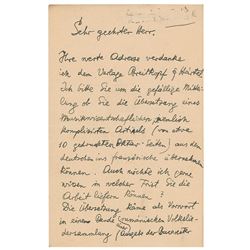 Sehr geehrter Herr,
Ihre werte Adresse verdanke
ich dem Verlage Breitkopf & Härtel.
Ich bitte Sie um die gefällige Mittei-
lung ob Sie die Übersetzung eines
Musikwissenschaftlichen, ziemlich
komplizierten Artikels (von etwa
10 gedruckten Oktav-Seiten) aus dem
deutschen ins französische übernehmen
können. Auch möchte ich gerne
wissen in welcher Frist Sie die
Arbeit liefern können?
Die Übersetzung käme als Vorwort
in einem Bande rumänischen Volkslie-
dersammlung (Ausgabe der Bukarester